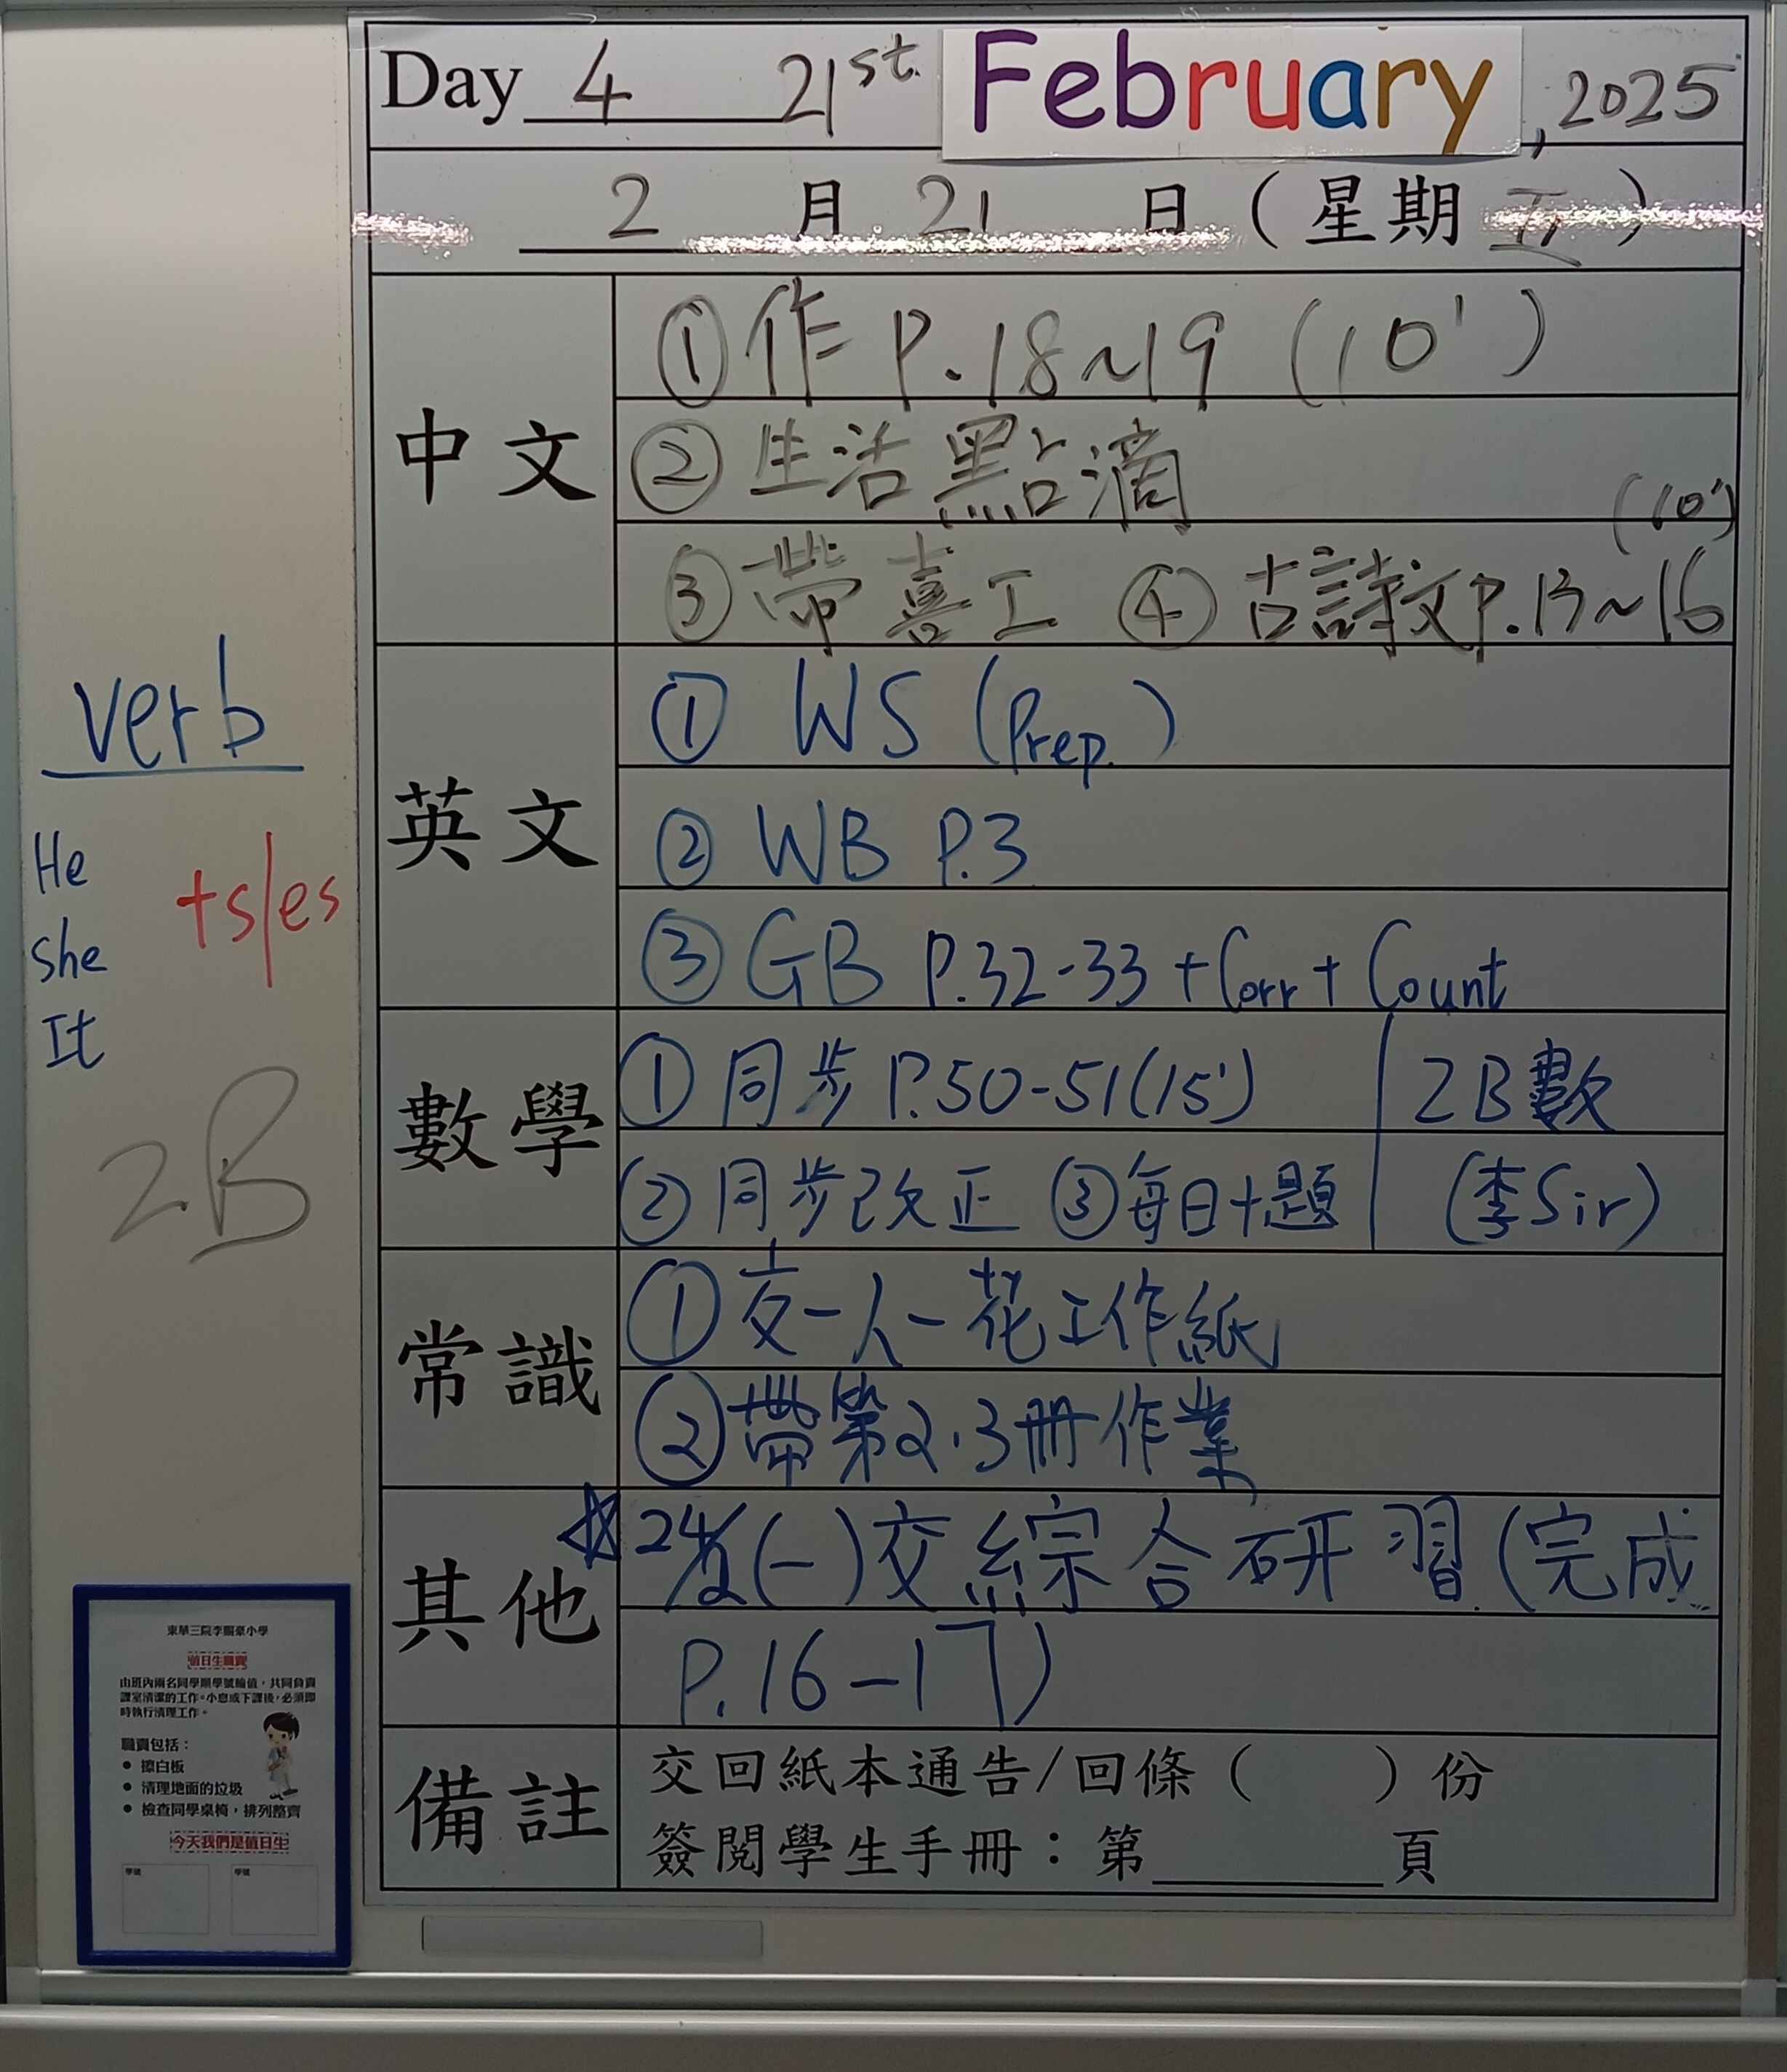 Day 4 21st. February, 2025
2 月 21 日 (星期 五)
中文
① 作 P.18~19 (10')
② 生活點滴
③ 帶喜工 ④ 古詩文P.13~16 (10')
英文
① WS (Prep.)
② WB P.3
③ GB P.32-33 + Corr + Count
數學
① 同步 P.50-51(15') 2B數
② 同步改正 ③每日十題 (李Sir)
常識
① 交一人一花工作紙
② 帶第2.3冊作業
其他
☆24/2(一)交綜合研習(完成
P.16-17)
備註
交回紙本通告/回條 ( ) 份
簽閱學生手冊：第______頁
verb
He
she
It
+s/es
2B
東華三院李賜豪小學
值日生職責
由班內兩名同學順學號輪值，共同負責
課室清潔的工作。小息或下課後，必須即
時執行清理工作。
職責包括：
● 擦白板
● 清理地面的垃圾
● 檢查同學桌椅，排列整齊
今天我們是值日生
學號 學號